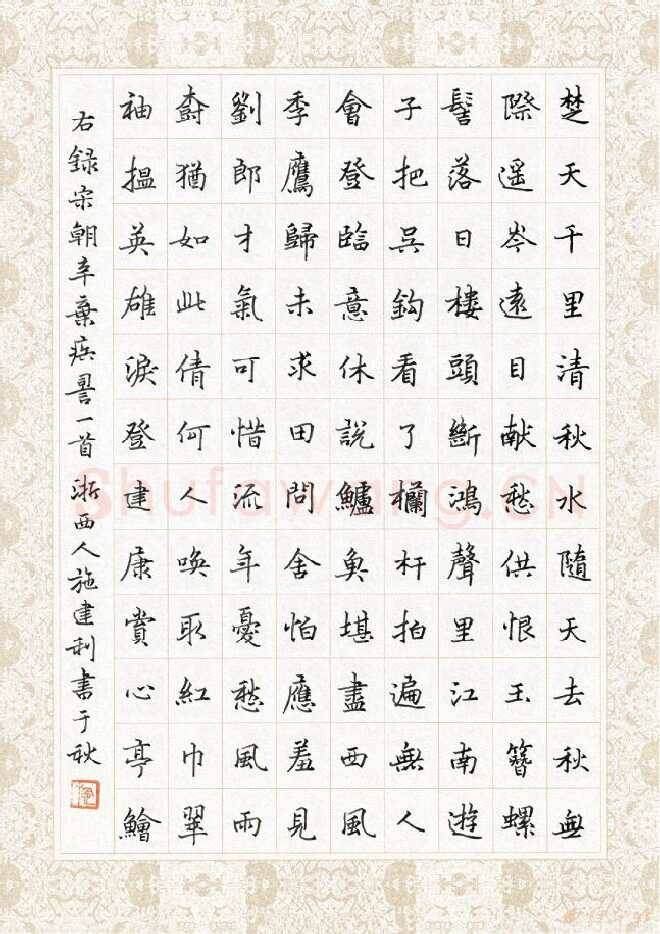 楚天千里清秋水隨天去秋無
際遥岑遠目献愁供恨玉簪螺
髻落日楼頭斷鴻聲里江南遊
子把吳鈎看了欄杆拍遍無人
會登臨意休説鱸魚堪盡西風
季鷹歸未求田問舍怕應羞見
劉郎才氣可惜流年憂愁風雨
樹猶如此倩何人喚取紅巾翠
袖揾英雄淚登建康賞心亭鱠
右録宋朝辛棄疾一首 浙西人施建利書于秋
Shufawang.CN